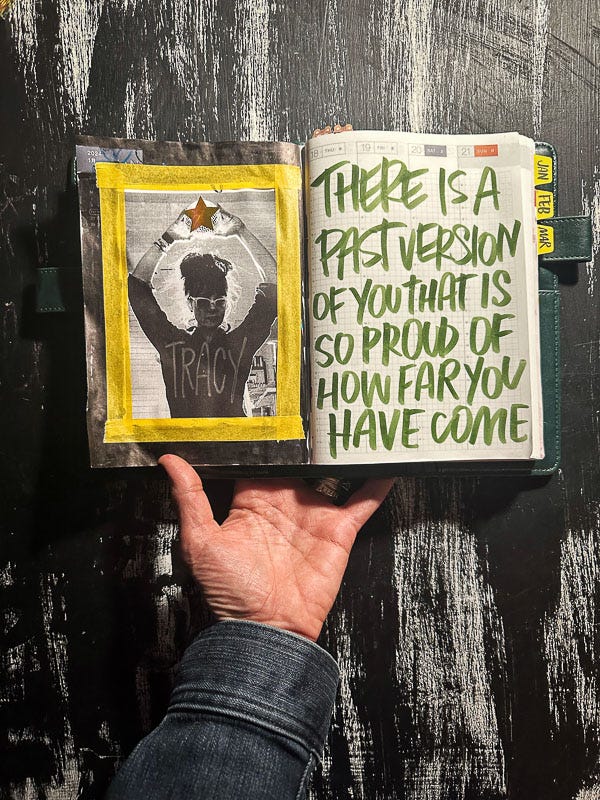 2024
18
TRACY
18 THU
19 FRI
20 SAT
21 SUN
THERE IS A
PAST VERSION
OF YOU THAT IS
SO PROUD OF
HOW FAR YOU
HAVE COME
JAN
FEB
MAR